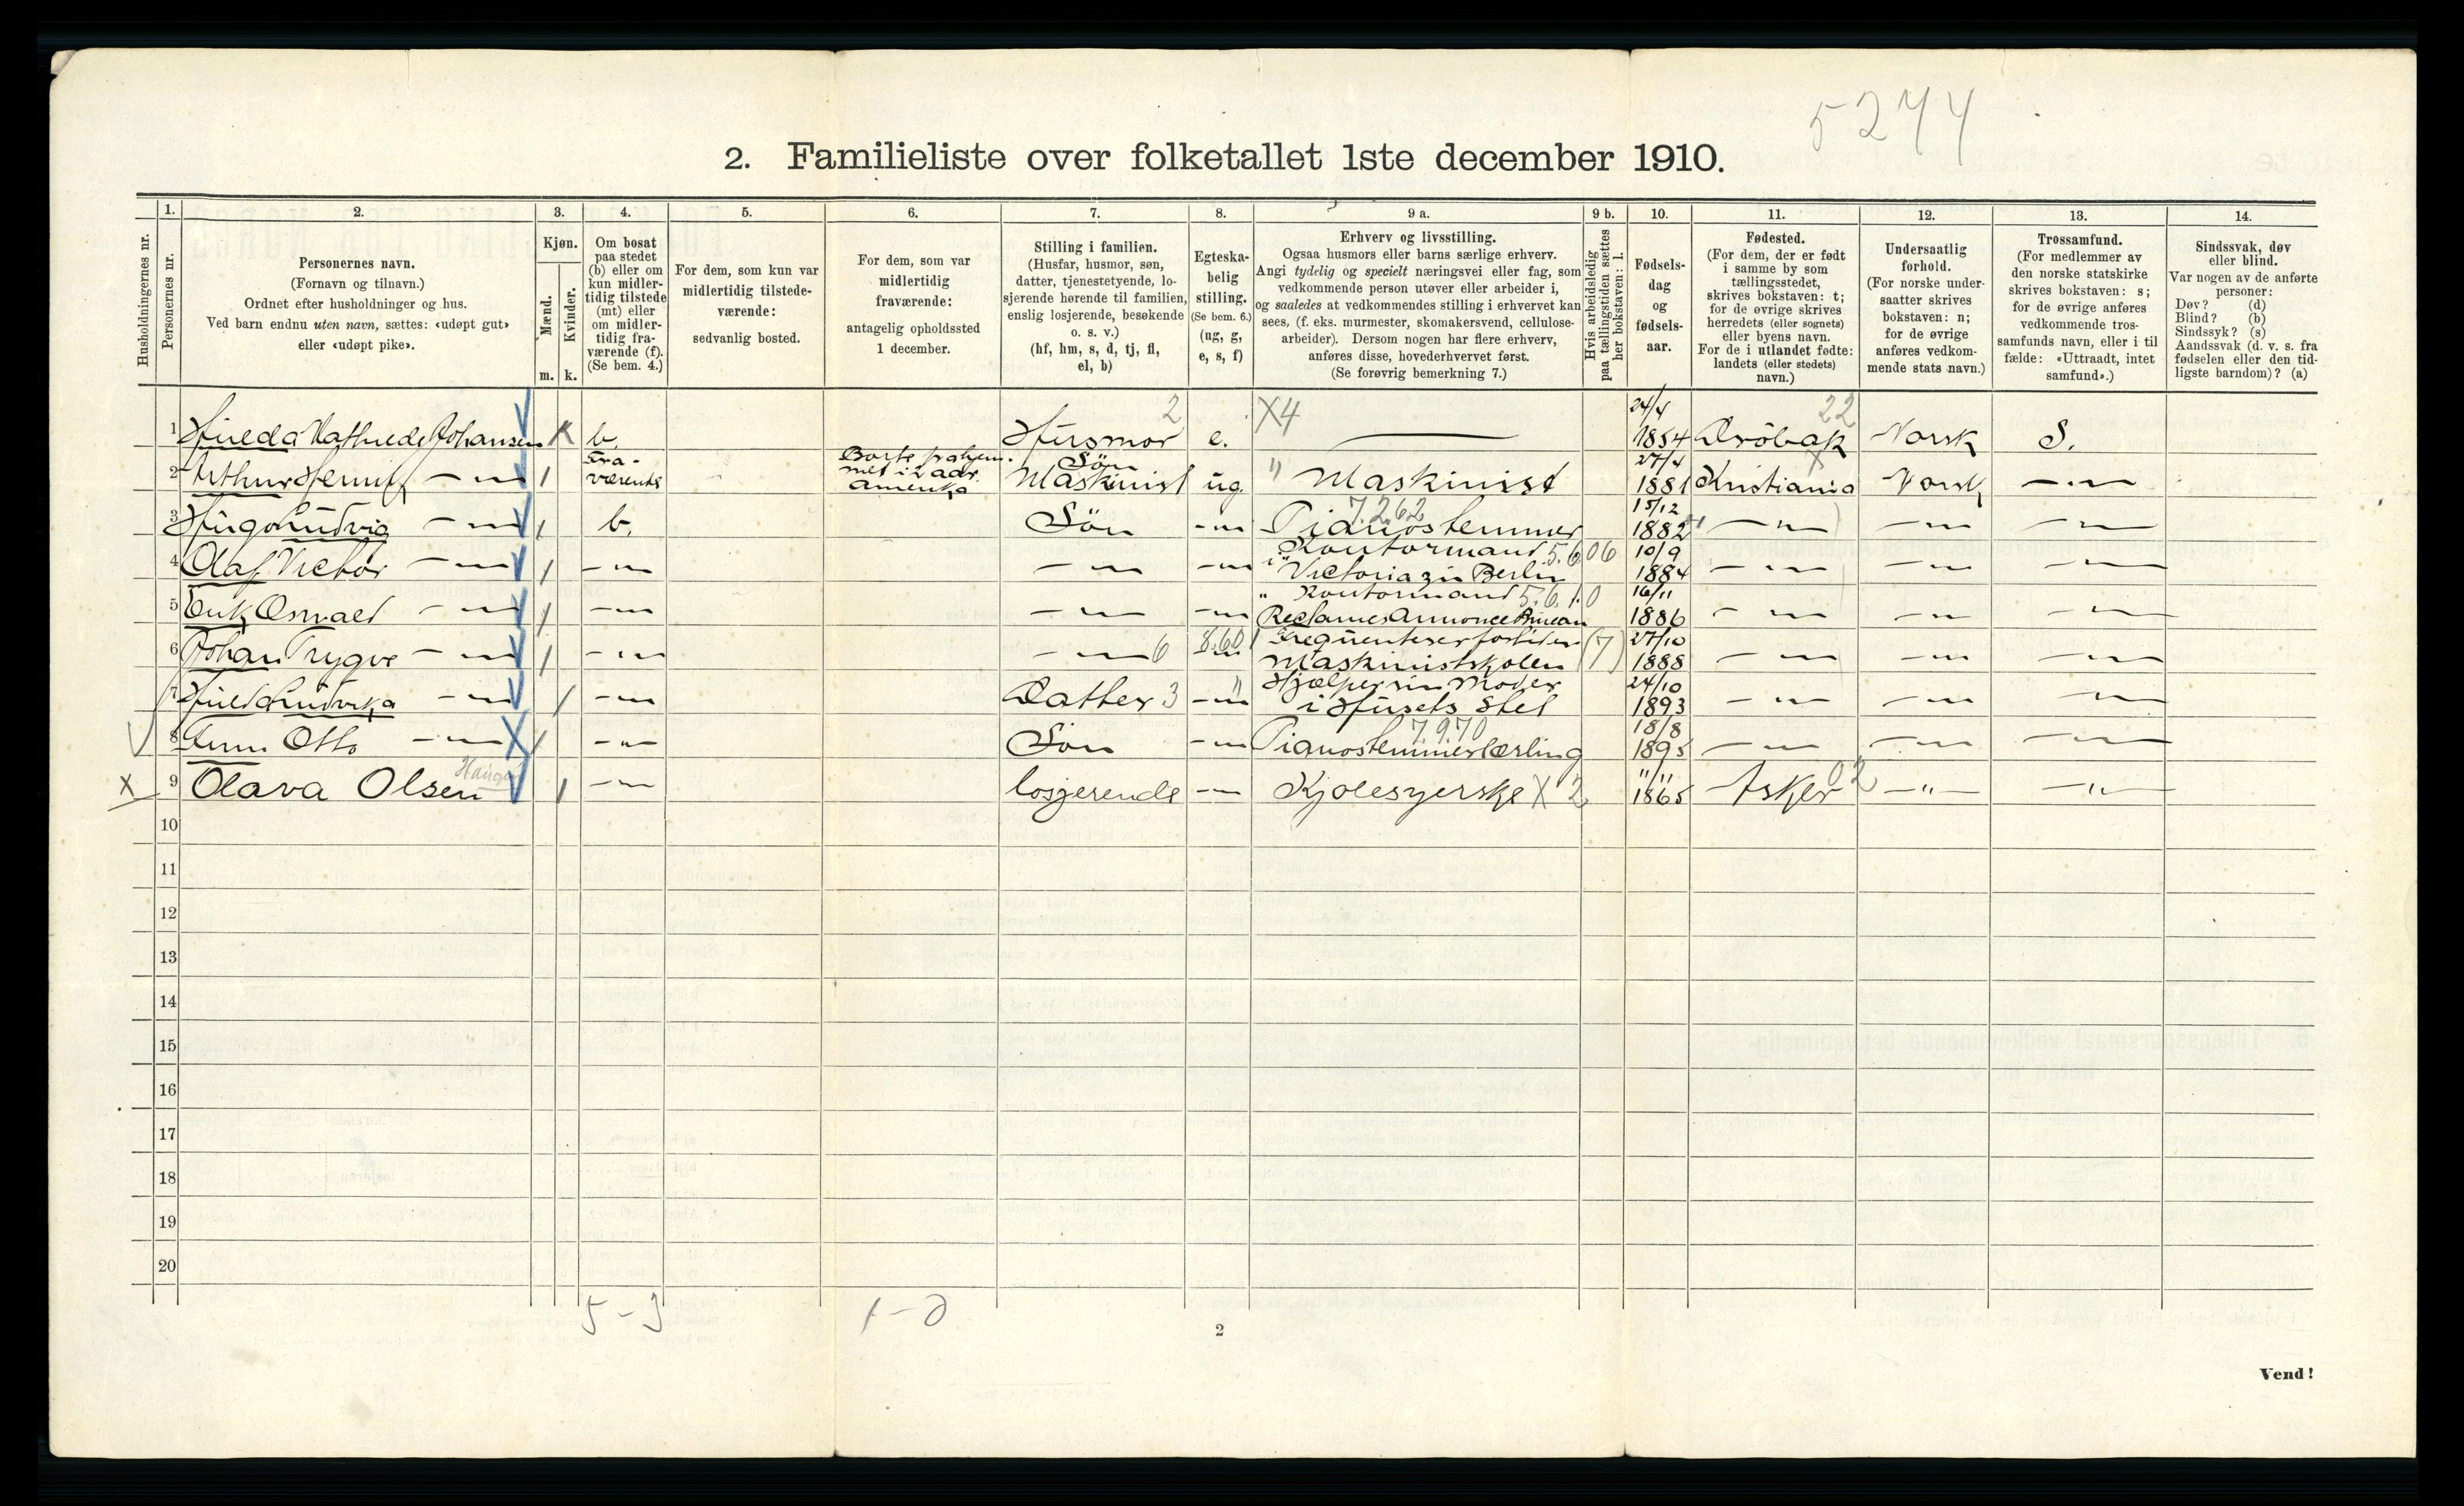 5244
2. Familieliste over folketallet 1ste december 1910.
Husholdningernes nr.
1. Personernes nr.
2. Personernes navn.
(Fornavn og tilnavn.)
Ordnet efter husholdninger og hus.
Ved barn endnu uten navn, sættes: «udøpt gut»
eller «udøpt pike».
3. Kjøn.
Mænd.
Kvinder.
m. k.
4. Om bosat
paa stedet
(b) eller om
kun midler-
tidig tilstede
(mt) eller
om midler-
tidig fra-
værende (f).
(Se bem. 4.)
5. For dem, som kun var
midlertidig tilstede-
værende:
sedvanlig bosted.
6. For dem, som var
midlertidig
fraværende:
antagelig opholdssted
1 december.
7. Stilling i familien.
(Husfar, husmor, søn,
datter, tjenestetyende, lo-
sjerende hørende til familien,
enslig losjerende, besøkende
o. s. v.)
(hf, hm, s, d, tj, fl,
el, b)
8. Egteska-
belig
stilling.
(Se bem. 6.)
(ug, g,
e, s, f)
9 a. Erhverv og livsstilling.
Ogsaa husmors eller barns særlige erhverv.
Angi tydelig og specielt næringsvei eller fag, som
vedkommende person utøver eller arbeider i,
og saaledes at vedkommendes stilling i erhvervet kan
sees, (f. eks. murmester, skomakersvend, cellulose-
arbeider). Dersom nogen har flere erhverv,
anføres disse, hovederhvervet først.
(Se forøvrig bemerkning 7.)
9 b. Hvis arbeidsledig
paa tællingstiden sættes
her bokstaven: l.
10. Fødsels-
dag
og
fødsels-
aar.
11. Fødested.
(For dem, der er født
i samme by som
tællingsstedet,
skrives bokstaven: t;
for de øvrige skrives
herredets (eller sognets)
eller byens navn.
For de i utlandet fødte:
landets (eller stedets)
navn.)
12. Undersaatlig
forhold.
(For norske under-
saatter skrives
bokstaven: n;
for de øvrige
anføres vedkom-
mende stats navn.)
13. Trossamfund.
(For medlemmer av
den norske statskirke
skrives bokstaven: s;
for de øvrige anføres
vedkommende tros-
samfunds navn, eller i til
fælde: «Uttraadt, intet
samfund».)
14. Sindssvak, døv
eller blind.
Var nogen av de anførte
personer:
Døv? (d)
Blind? (b)
Sindssyk? (s)
Aandssvak (d. v. s. fra
fødselen eller den tid-
ligste barndom)? (a)
1 Hulda Mathilde Johansen K b. Husmor 2 e. X4 — 24/4 1854 Drøbak 22 Norsk S.
2 Arthur Henrik — " — 1 Fra-værende Borte fra hjem-met i 2 aar Amerika Søn Maskinist ug. " Maskinist 27/4 1881 Kristiania Norsk — " —
3 Hugo Ludvig — " — 1 b. Søn — " — Pianostemmer 7.262 15/12 1882 — " — — " — — " —
4 Olaf Victor — " — 1 — " — — " — — " — Kontormand i Victoria zu Berlin 5.606 10/9 1884 — " — — " — — " —
5 Erik Osvald — " — 1 — " — — " — — " — " Kontormand 5.6.10 Reclames Annonce Bureau 16/11 1886 — " — — " — — " —
6 Johan Trygve — " — 1 — " — — " — 6 8.60 Frequenterer fortiden Maskinistskolen (7) 27/10 1888 — " — — " — — " —
7 Huld Ludvika — " — 1 — " — Datter 3 — " — Hjælper sin Moder i Husets Stel 24/10 1893 — " — — " — — " —
8 Finn Otto — " — X 1 — " — Søn — " — Pianostemmerlærling 7.970 18/8 1895 — " — — " — — " —
X 9 Olava Olsen Haugen 1 — " — losjerende — " — Kjolesyerske X 2 11/11 1865 Asker 02 — " — — " —
10
11
12
13
14
15
16
17
18
19
20
5 – 3
1 – 0
2
Vend!